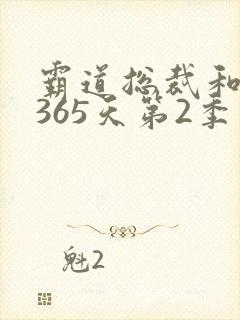 霸道总裁和
365天第2季
魁2